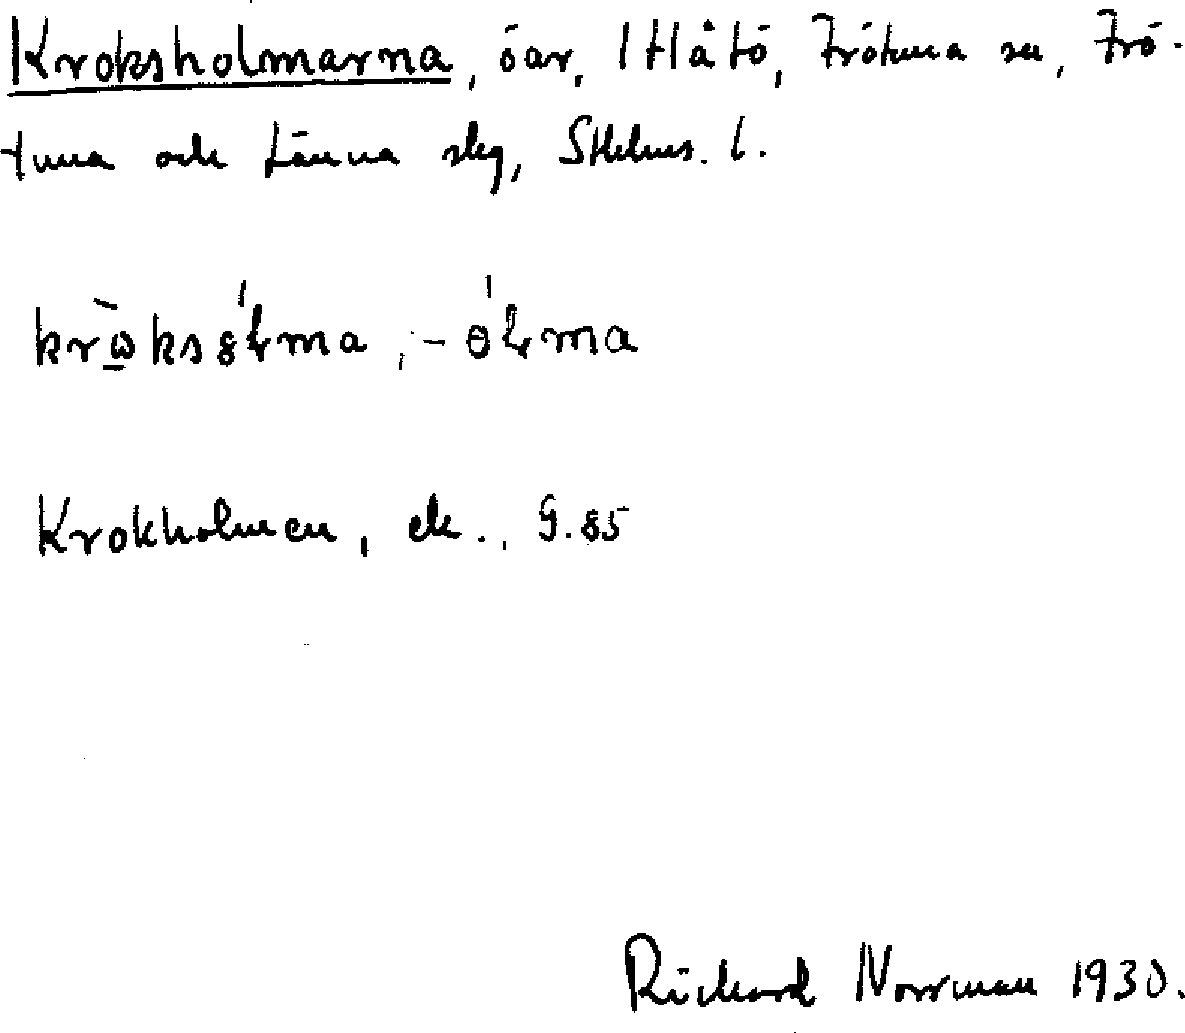 Kroksholmarna, öar, 1 Håtö, Frötuna sn, Frö-
tuna och Länna skg, Sthlms. l.
Krokholmen, ek., G. 85
Rickard Norrman 1930.